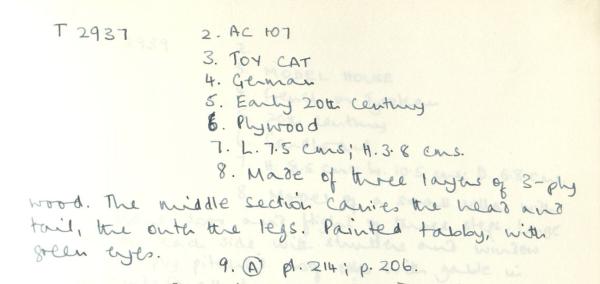 T 2937 2. AC 107
3. TOY CAT
4. German
5. Early 20th Century
6. Plywood
7. L. 7.5 cms; H. 3.8 cms.
8. Made of three layers of 3-ply
wood. The middle section carries the head and
tail, the outer the legs. Painted tabby, with
green eyes.
9. (A) pl. 214; p. 206.